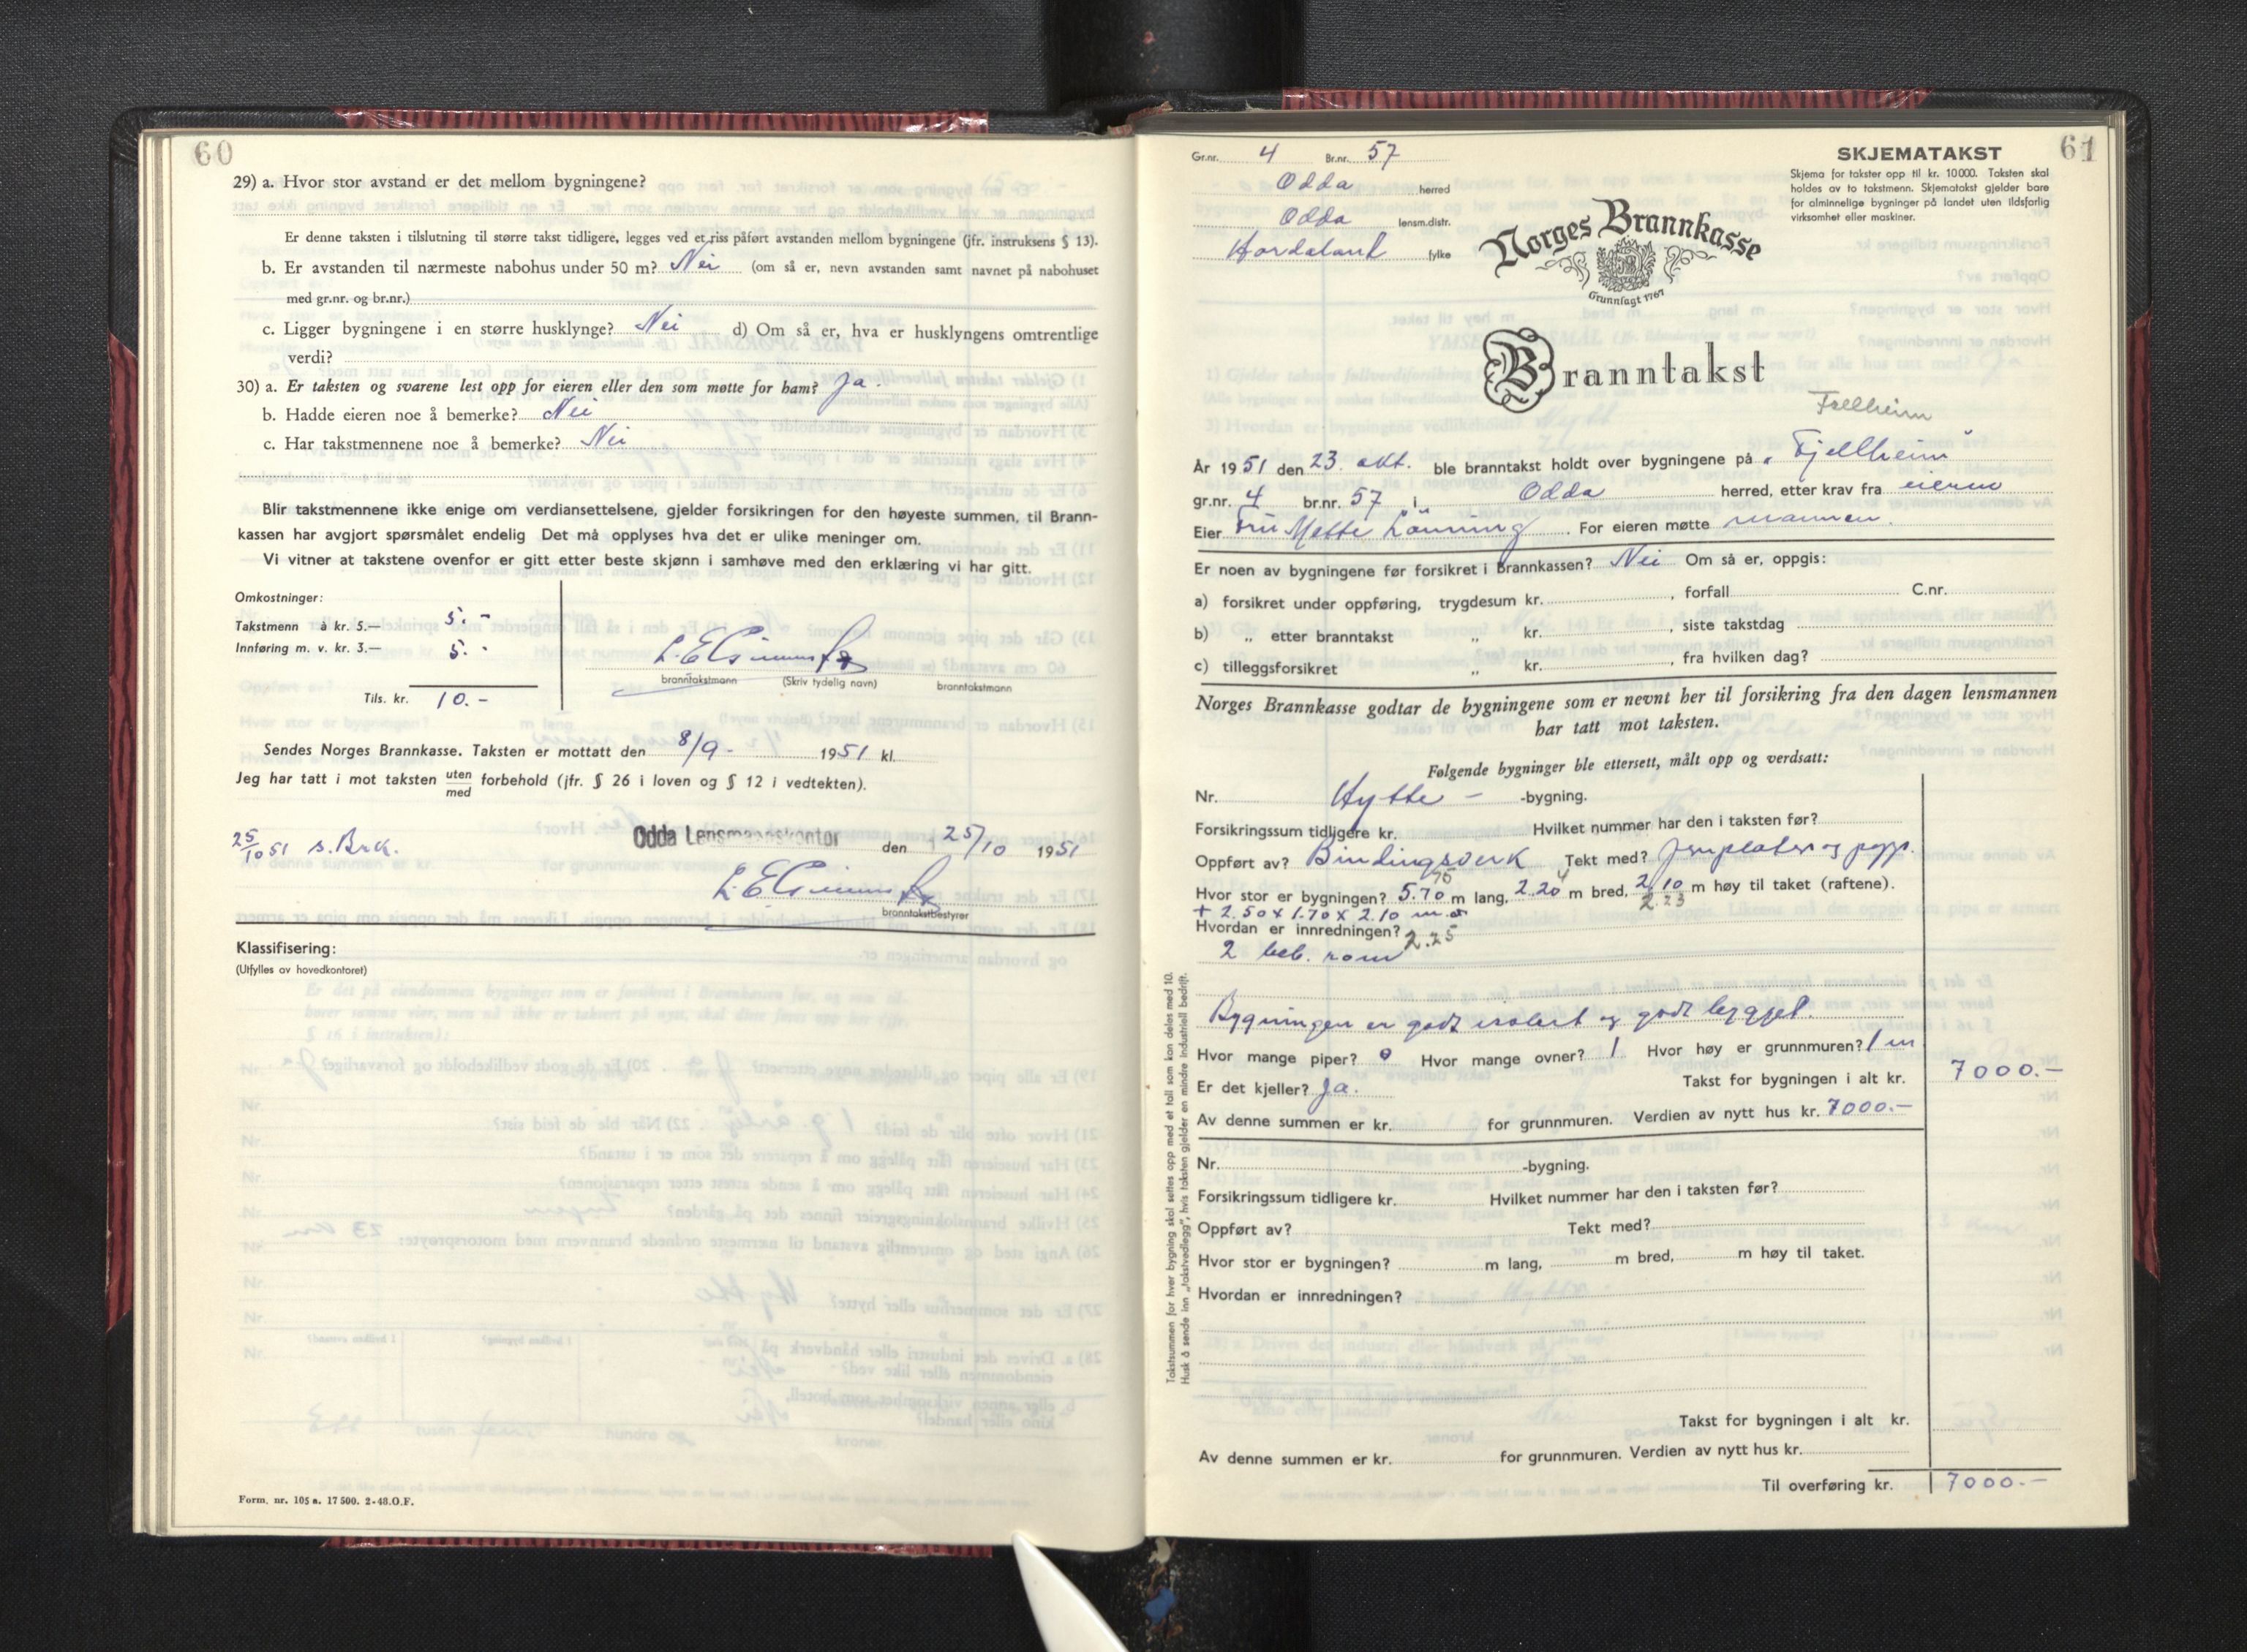 60
29) a. Hvor stor avstand er det mellom bygningene?
Er denne taksten i tilslutning til større takst tidligere, legges ved et riss påført avstanden mellom bygningene (jfr. instruksens § 13).
b. Er avstanden til nærmeste nabohus under 50 m? Nei (om så er, nevn avstanden samt navnet på nabohuset
med gr.nr. og br.nr.)
c. Ligger bygningene i en større husklynge? Nei d) Om så er, hva er husklyngens omtrentlige
verdi?
30) a. Er taksten og svarene lest opp for eieren eller den som møtte for ham? Ja.
b. Hadde eieren noe å bemerke? Nei
c. Har takstmennene noe å bemerke? Nei
Blir takstmennene ikke enige om verdiansettelsene, gjelder forsikringen for den høyeste summen, til Brann-
kassen har avgjort spørsmålet endelig Det må opplyses hva det er ulike meninger om.
Vi vitner at takstene ovenfor er gitt etter beste skjønn i samhøve med den erklæring vi har gitt.
Omkostninger:
Takstmenn à kr. 5.— 5.-
Innføring m. v. kr. 3.— 5.-
Tils. kr. 10.-
branntakstmann (Skriv tydelig navn) branntakstmann
Sendes Norges Brannkasse. Taksten er mottatt den 8/9- 1951 kl.
Jeg har tatt i mot taksten uten/med forbehold (jfr. § 26 i loven og § 12 i vedtekten).
25/10 51 s. Brk. Odda Lensmannskontor den 25/10 1951
branntakstbestyrer
Klassifisering:
(Utfylles av hovedkontoret)
Form. nr. 105 a. 17 500. 2-48. O.F.
61
Gr.nr. 4 Br.nr. 57
Odda herred
Odda lensm.distr.
Hordaland fylke
SKJEMATAKST
Skjema for takster opp til kr. 10000. Taksten skal
holdes av to takstmenn. Skjematakst gjelder bare
for alminnelige bygninger på landet uten ildsfarlig
virksomhet eller maskiner.
Norges Brannkasse
Grunnlagt 1767
Branntakst
År 1951 den 23. okt. ble branntakst holdt over bygningene på „Fjellheim"
gr.nr. 4 br.nr. 57 i Odda herred, etter krav fra eieren
Eier Fru Mette Lönning. For eieren møtte mannen.
Er noen av bygningene før forsikret i Brannkassen? Nei Om så er, oppgis:
a) forsikret under oppføring, trygdesum kr. , forfall C.nr.
b) „ etter branntakst „ kr. , siste takstdag
c) tilleggsforsikret „ kr. , fra hvilken dag?
Norges Brannkasse godtar de bygningene som er nevnt her til forsikring fra den dagen lensmannen
har tatt mot taksten.
Følgende bygninger ble ettersett, målt opp og verdsatt:
Nr. Hytte - -bygning.
Forsikringssum tidligere kr. Hvilket nummer har den i taksten før?
Oppført av? Bindingsverk Tekt med? Jernplater og papp.
Hvor stor er bygningen? 5.70 m lang, 2.20 m bred, 2.10 m høy til taket (raftene).
2.23
+ 2.50 x 1.70 x 2.10 m.
Hvordan er innredningen? 2.25
2 beb. rom
Bygningen er godt isolert og godt bygget.
Hvor mange piper? 0 Hvor mange ovner? 1 Hvor høy er grunnmuren? 1 m
Er det kjeller? Ja. Takst for bygningen i alt kr. 7000.-
Av denne summen er kr. for grunnmuren. Verdien av nytt hus kr. 7000.-
Nr. -bygning.
Forsikringssum tidligere kr. Hvilket nummer har den i taksten før?
Oppført av? Tekt med?
Hvor stor er bygningen? m lang, m bred, m høy til taket.
Hvordan er innredningen?
Takst for bygningen i alt kr.
Av denne summen er kr. for grunnmuren. Verdien av nytt hus kr.
Til overføring kr. 7000.-
Takstsummen for hver bygning skal settes opp med et tall som kan deles med 10.
Husk å sende inn „takstvedlegg", hvis taksten gjelder en mindre industriell bedrift.